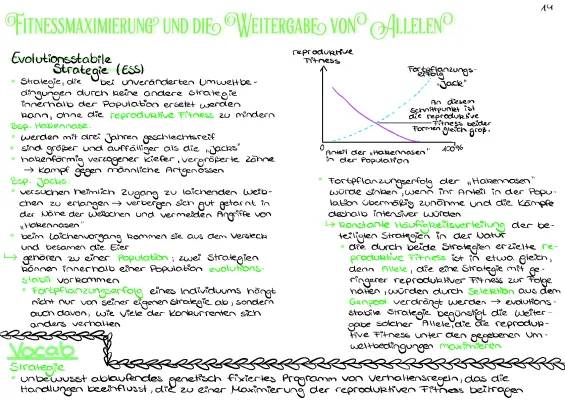 14
FITNESSMAXIMIERUNG UND DIE WEITERGABE VON ALLELEN
Evolutionsstabile
Strategie (ESS)
Strategie, die bei unveränderten Umweltbe-
dingungen durch keine andere Strategie
innerhalb der Population ersetzt werden
kann, ohne die reproduktive Fitness zu mindern
Bsp. Hakennase:
werden mit drei Jahren geschlechtsreif
sind größer und auffälliger als die „Jacks"
hakenförmig verzogener Kiefer, vergrößerte Zähne
→ Kampf gegen männliche Artgenossen
Bsp. Jacks:
versuchen heimlich Zugang zu laichenden Weib-
chen zu erlangen → verbergen sich gut getarnt in
der Nähe der Weibchen und vermeiden Angriffe von
„Hakennasen"
beim Laichvorgang kommen sie aus dem Versteck
und besamen die Eier
↳ gehören zu einer Population; zwei Strategien
können innerhalb einer Population evolutions-
stabil vorkommen
Fortpflanzungserfolg eines Individuums hängt
nicht nur von seiner eigenen Strategie ab, sondern
auch davon, wie viele der Konkurrenten sich
anders verhalten
reproduktive
Fitness
Fortpflanzungs-
erfolg
„Jack"
An diesem
Schnittpunkt ist
die reproduktive
Fitness beider
Formen gleich groß.
0
100%
Anteil der „Hakennasen"
in der Population
Fortpflanzungserfolg der „Hakennasen"
würde sinken, wenn ihr Anteil in der Popu-
lation übermäßig zunähme und die Kämpfe
deshalb intensiver würden
↳ konstante Häufigkeitsverteilung der be-
teiligten Strategien in der Natur
die durch beide Strategien erzielte re-
produktive Fitness ist in etwa gleich,
denn Allele, die eine Strategie mit ge-
ringerer reproduktiver Fitness zur Folge
hätten, würden durch Selektion aus dem
Genpool verdrängt werden → evolutions-
stabile Strategie begünstigt die Weiter-
gabe solcher Allele, die die reproduk-
tive Fitness unter den gegebenen Um-
weltbedingungen maximieren
Vocab
Strategie
unbewusst ablaufendes genetisch fixiertes Programm von Verhaltensregeln, das die
Handlungen beeinflusst, die zu einer Maximierung der reproduktiven Fitness beitragen